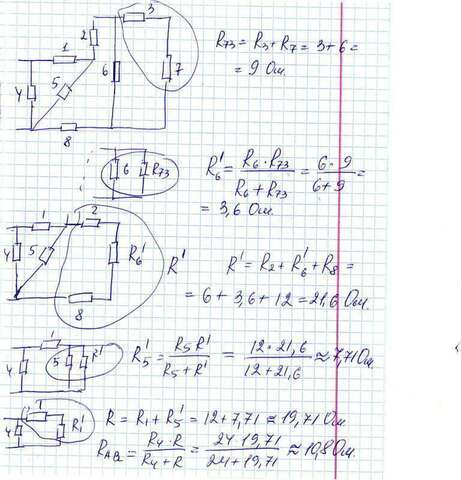 3
2
1
5
6
7
4
8
R73 = R3 + R7 = 3 + 6 =
= 9 Ом.
6 R73
R6' = R6 · R73 / R6 + R73 = 6 · 9 / 6 + 9 =
= 3,6 Ом.
1 2
4 5 R6' R'
8
R' = R2 + R6' + R8 =
= 6 + 3,6 + 12 = 21,6 Ом.
1
4 5 R'
R5' = R5 R' / R5 + R' = 12 · 21,6 / 12 + 21,6 ≈ 7,71 Ом.
1
4 R1'
R = R1 + R5' = 12 + 7,71 ≈ 19,71 Ом
= R4 · R / R4 + R = 24 · 19,71 / 24 + 19,71 ≈ 10,8 Ом.